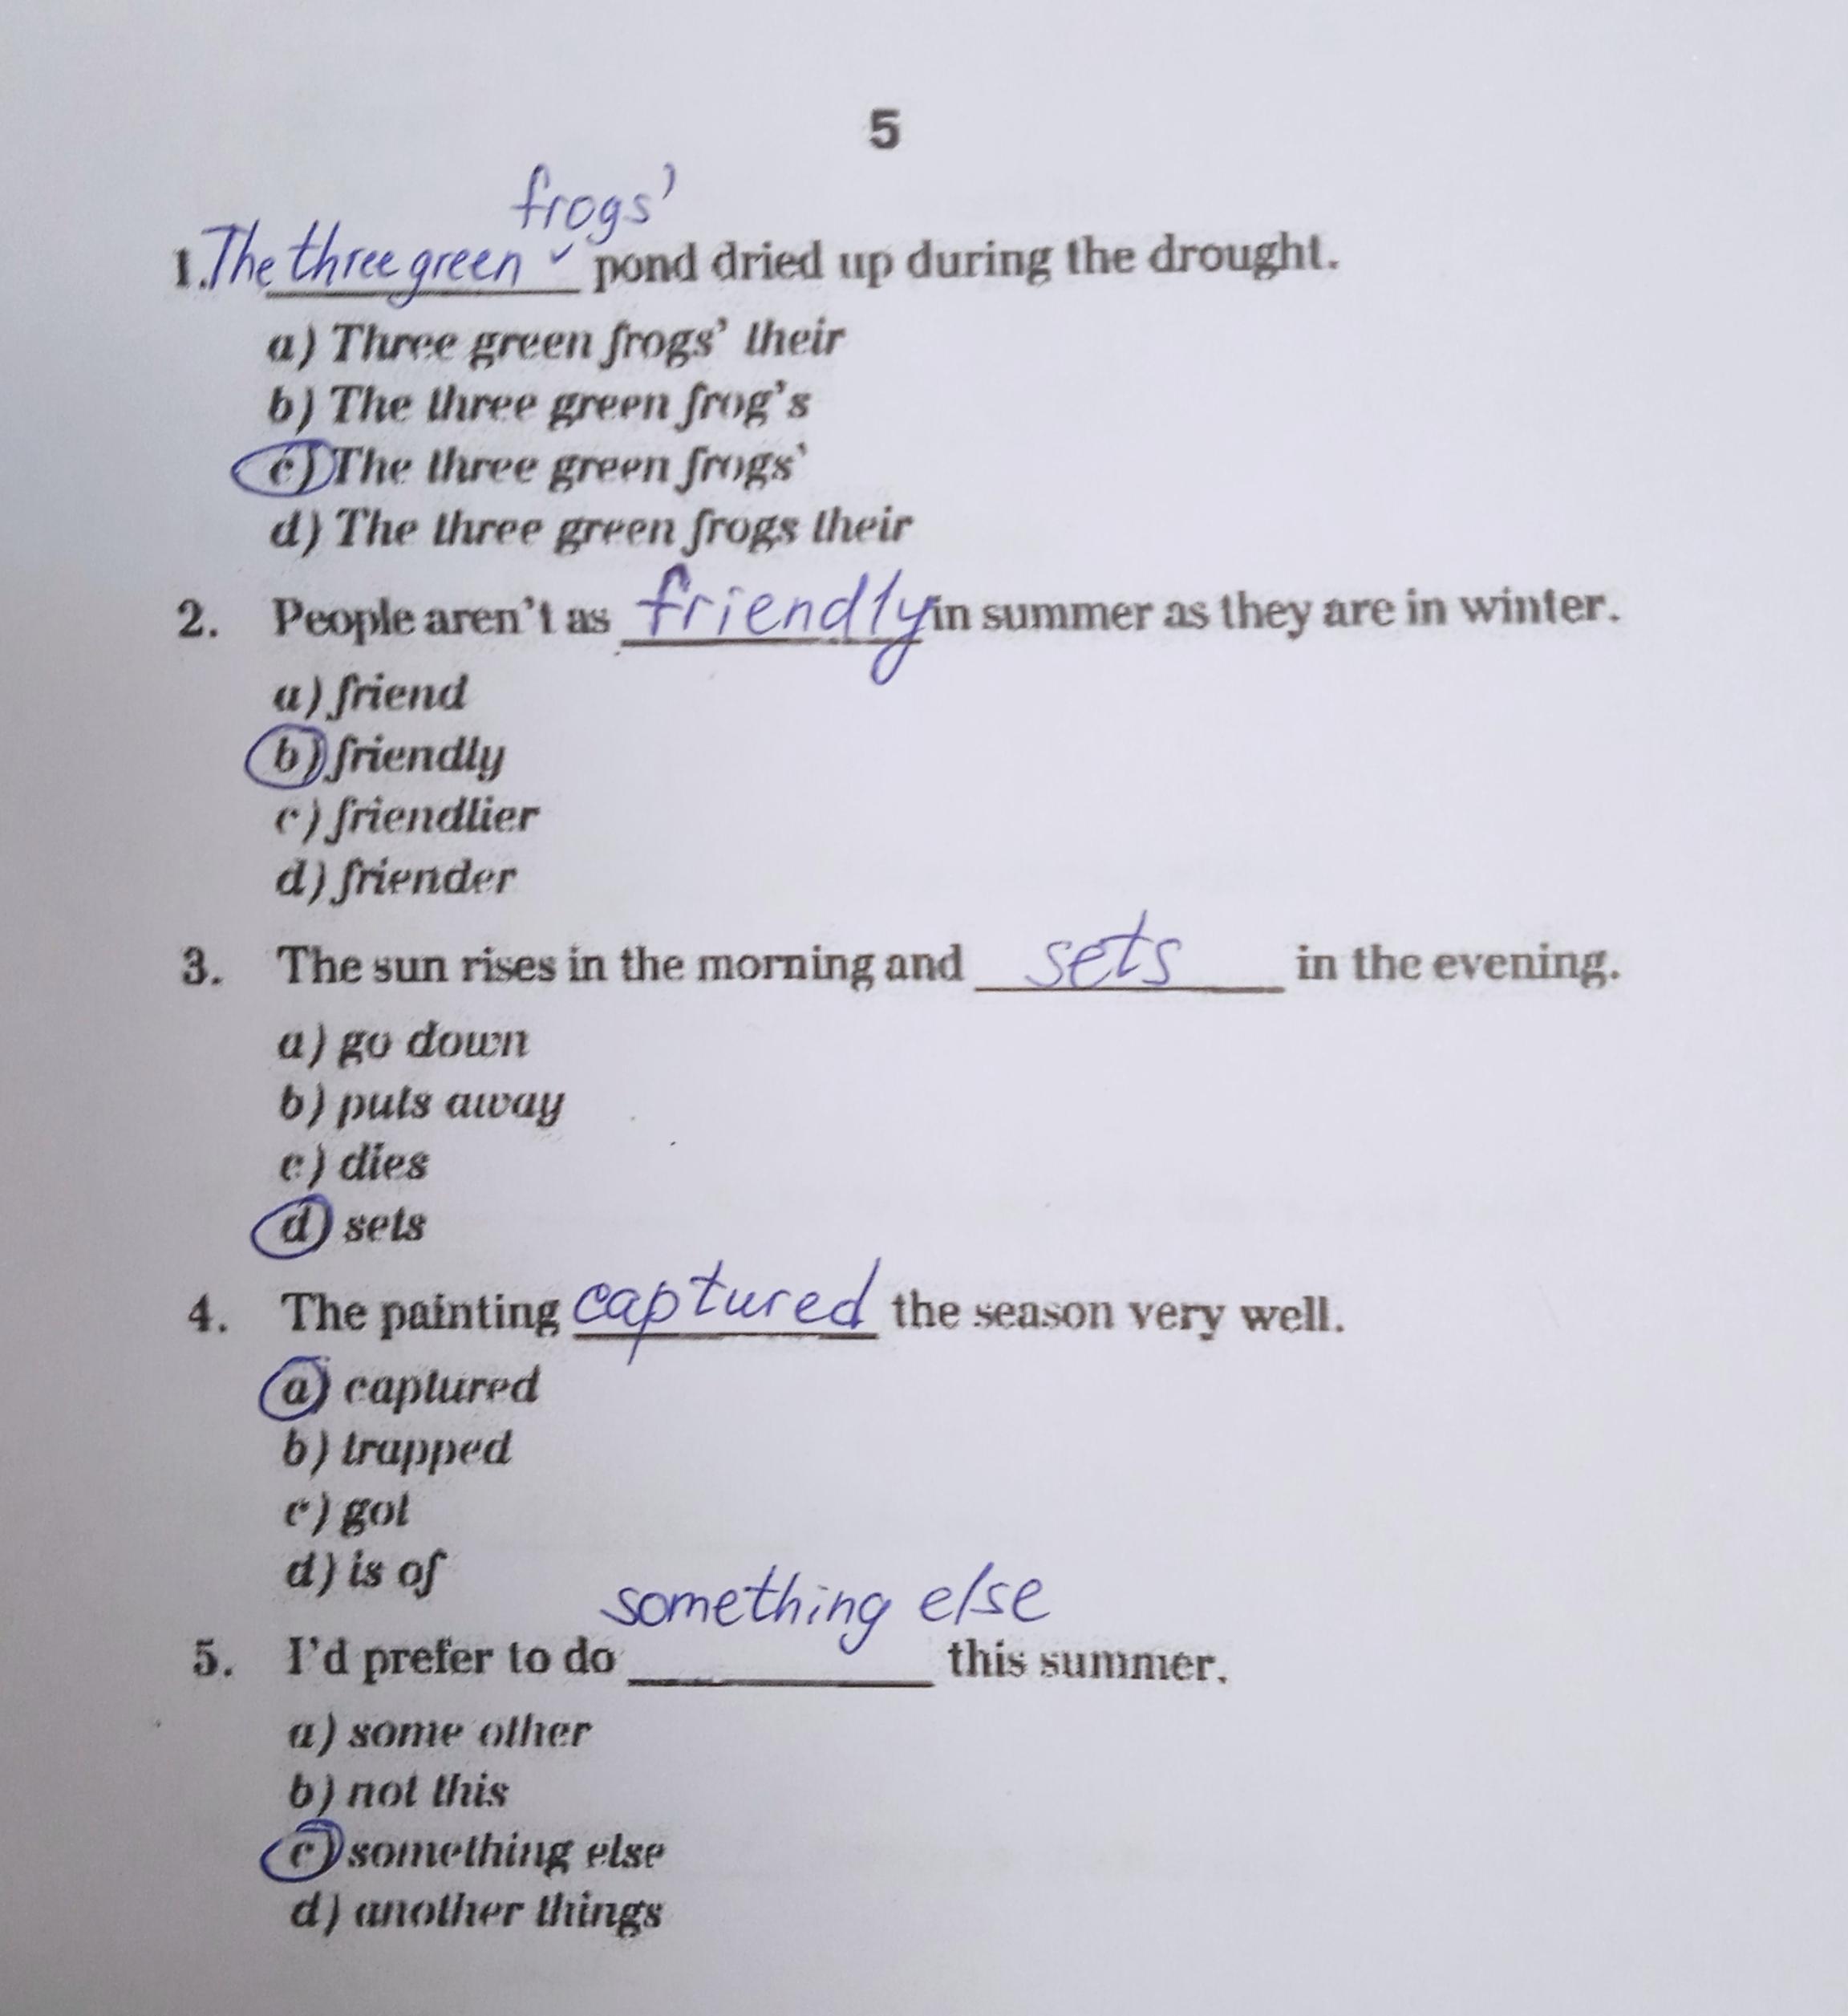 5
frogs'
1. The three green ✓ pond dried up during the drought.
a) Three green frogs' their
b) The three green frog's
c) The three green frogs'
d) The three green frogs their
2. People aren't as friendly in summer as they are in winter.
a) friend
b) friendly
c) friendlier
d) friender
3. The sun rises in the morning and sets in the evening.
a) go down
b) puts away
c) dies
d) sets
4. The painting captured the season very well.
a) captured
b) trapped
c) got
d) is of
something else
5. I'd prefer to do ________ this summer.
a) some other
b) not this
c) something else
d) another things